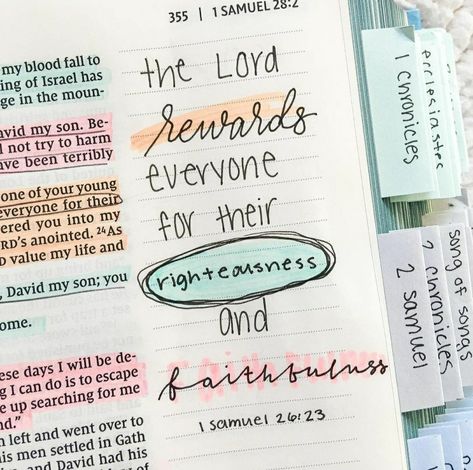 355 | 1 SAMUEL 28:2
my blood fall to
ing of Israel has
ge in the moun-
avid my son. Be-
l not try to harm
ave been terribly
one of your young
everyone for their
ered you into my
RD's anointed. 24As
D value my life and
, David my son; you
ome.
ese days I will be de-
g I can do is to escape
e up searching for me
nd."
n left and went over to
his men settled in Gath
, and David had his
the Lord
rewards
everyone
for their
righteousness
and
faithfulness
1 samuel 26:23
1 chronicles
ecclesiastes
2 samuel
2 chronicles
song of songs